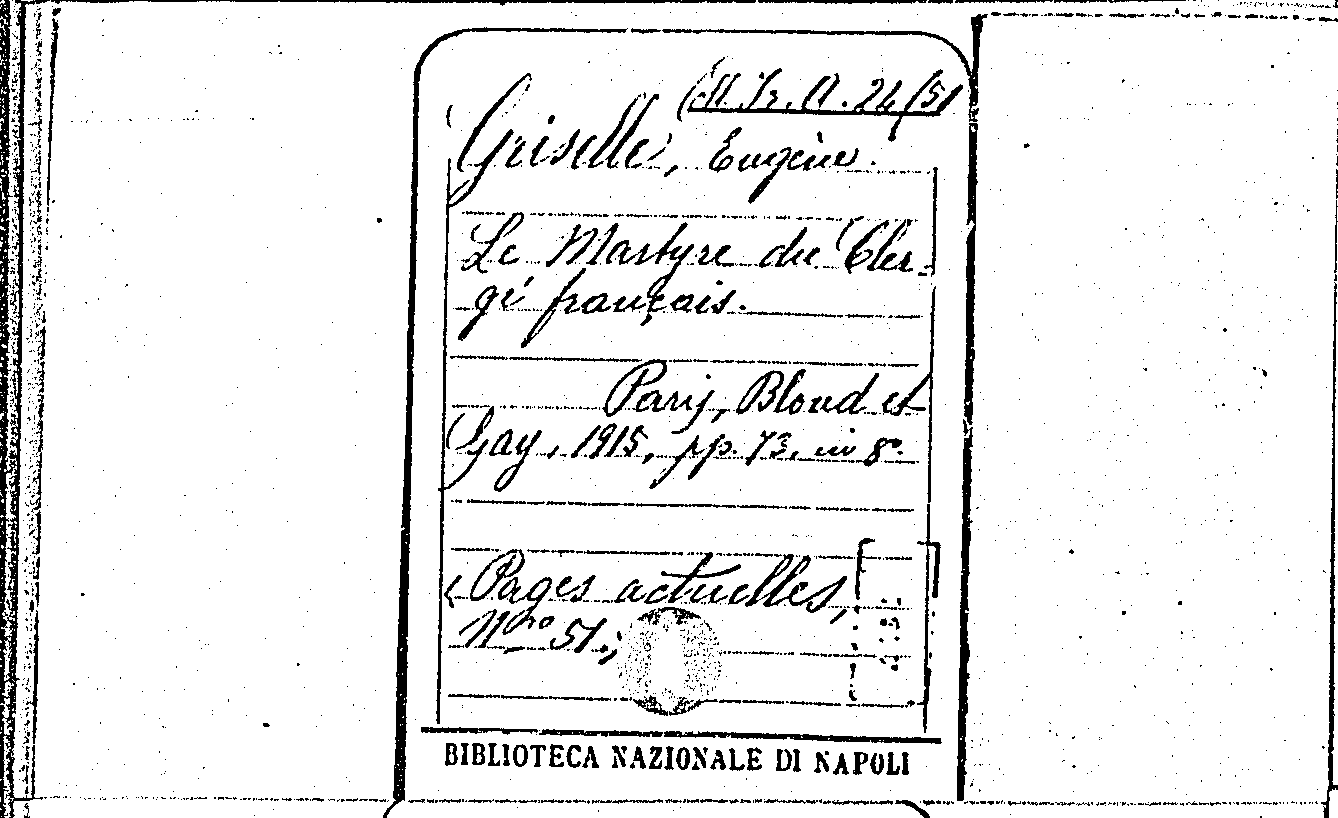 24/51
Griselle, Eugène.
Le Martyre du Cler-
gé français.
Paris, Bloud et
Gay, 1915, pp. 73, in 8º.
(Pages actuelles,
Nro 51.;
BIBLIOTECA NAZIONALE DI NAPOLI